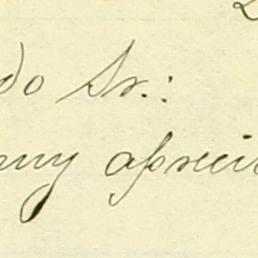 do Sr.:
muy apreci